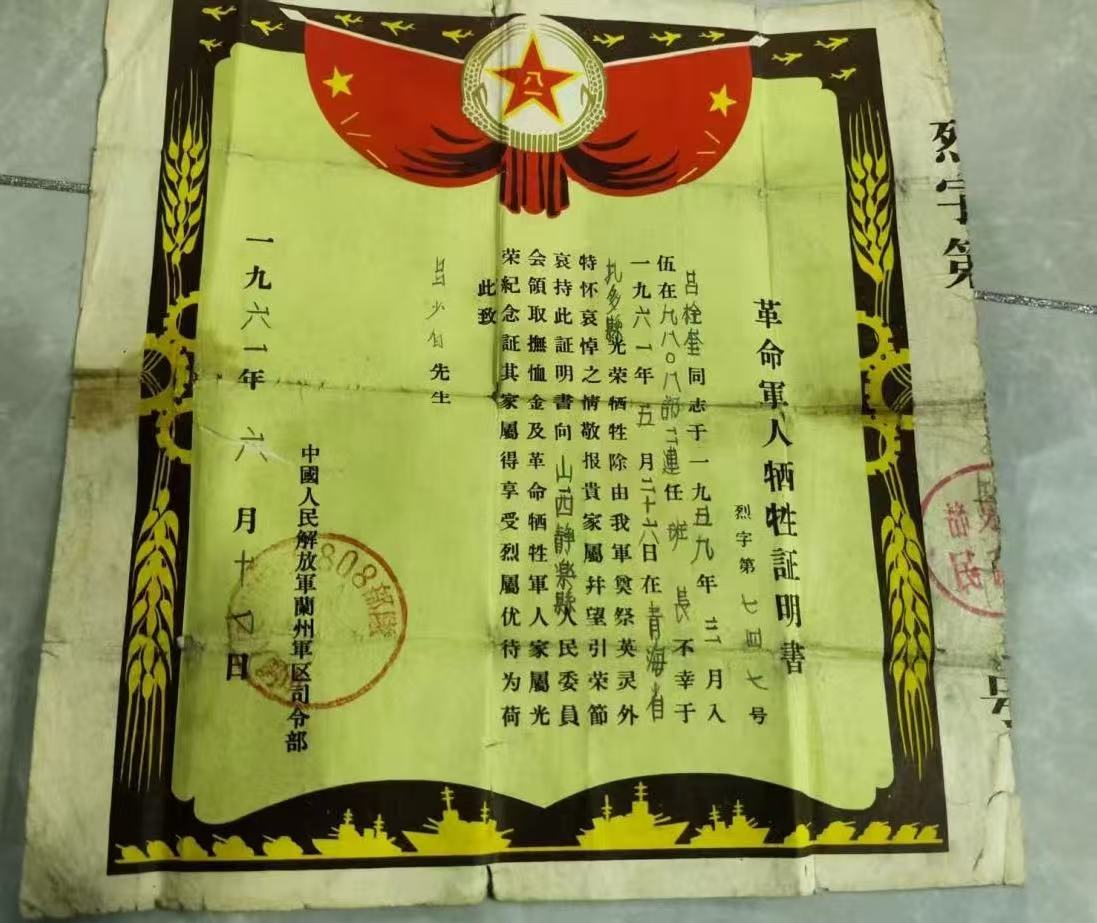 八一
革命軍人牺牲証明書
烈字第七四七号
吕栓奎同志于一九五九年三月入
伍在九八〇八部二連任班長不幸于
一九六一年五月二十六日在青海省
扎多縣光荣牺牲除由我軍奠祭英灵外
特怀哀悼之情敬报貴家屬幷望引荣節
哀持此証明書向山西静楽縣人民委員
会領取撫恤金及革命牺牲軍人家屬光
荣紀念証其家屬得享受烈屬优待为荷
此致
吕少自先生
中國人民解放軍蘭州軍区司令部
一九六一年六月十七日
808部隊
烈字第
号